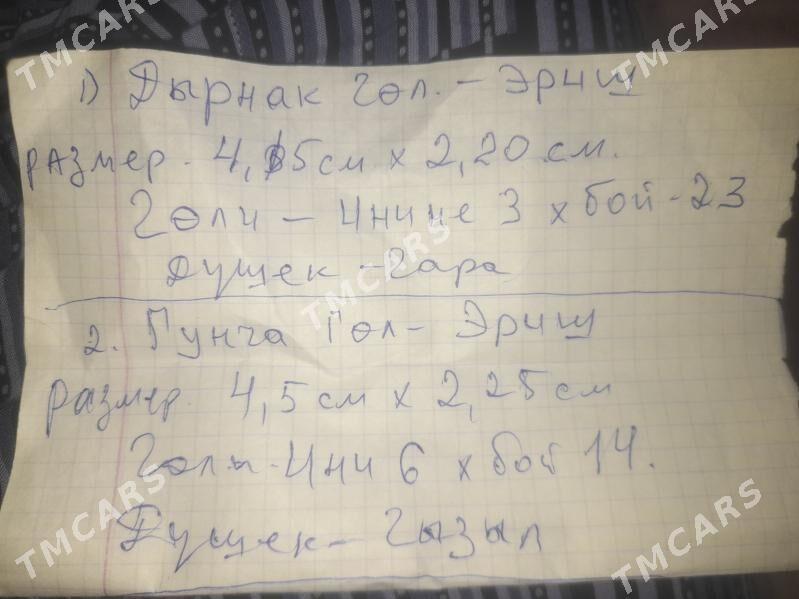 1) Дырнак гөл. - Эриш
размер. 4,5см х 2,20 см.
Гөли - Инине 3 х бой - 23
Душек - Гара
2. Гунча Гөл - Эриш
размер. 4,5 см х 2,25 см
Гөли - Ини 6 х бой 14.
Душек - Гызыл
TMCARS
TMCARS
TMCARS
TMCARS
TMCARS